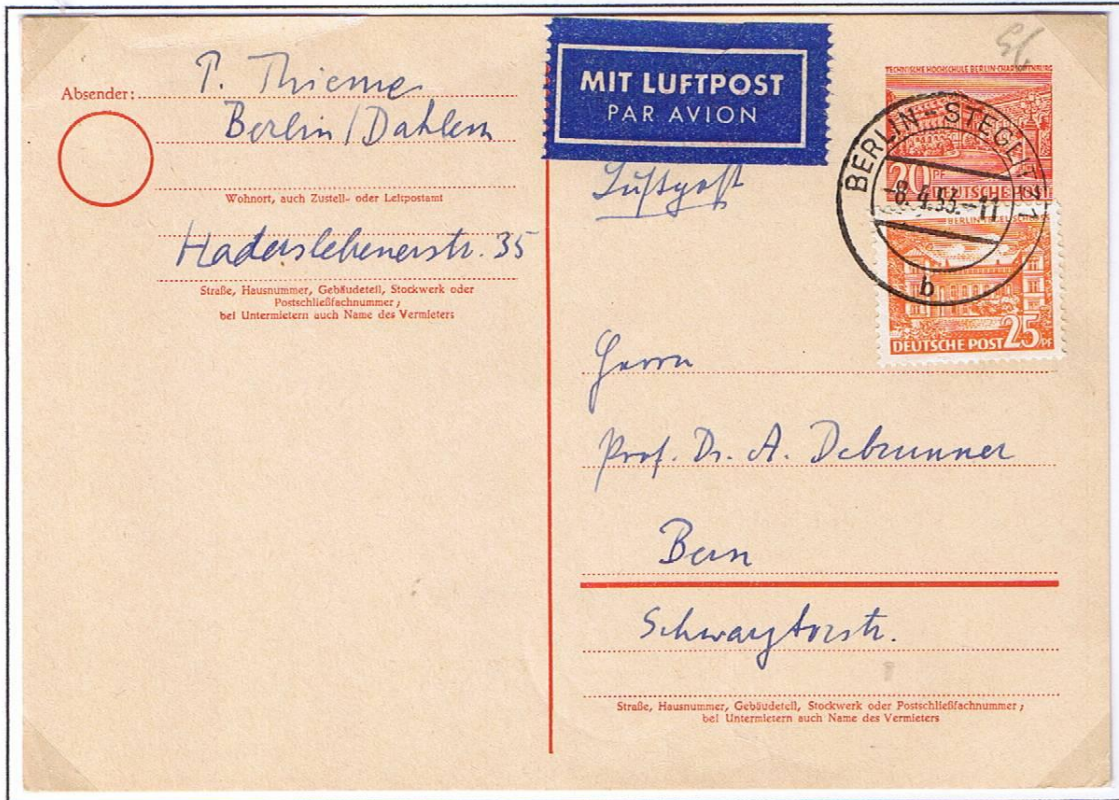 Absender: P. Thieme
Berlin/Dahlem
Wohnort, auch Zustell- oder Leitpostamt
Haderslebenerstr. 35
Straße, Hausnummer, Gebäudeteil, Stockwerk oder
Postschließfachnummer;
bei Untermietern auch Name des Vermieters
MIT LUFTPOST
PAR AVION
Luftpost
TECHNISCHE HOCHSCHULE BERLIN-CHARLOTTENBURG
20 PF DEUTSCHE
BERLIN-STEGLITZ 1
-8.4.53.-11
b
DEUTSCHE POST 25 PF
Herrn
Prof. Dr. A. Debrunner
Bern
Schwarztorstr.
Straße, Hausnummer, Gebäudeteil, Stockwerk oder Postschließfachnummer;
bei Untermietern auch Name des Vermieters